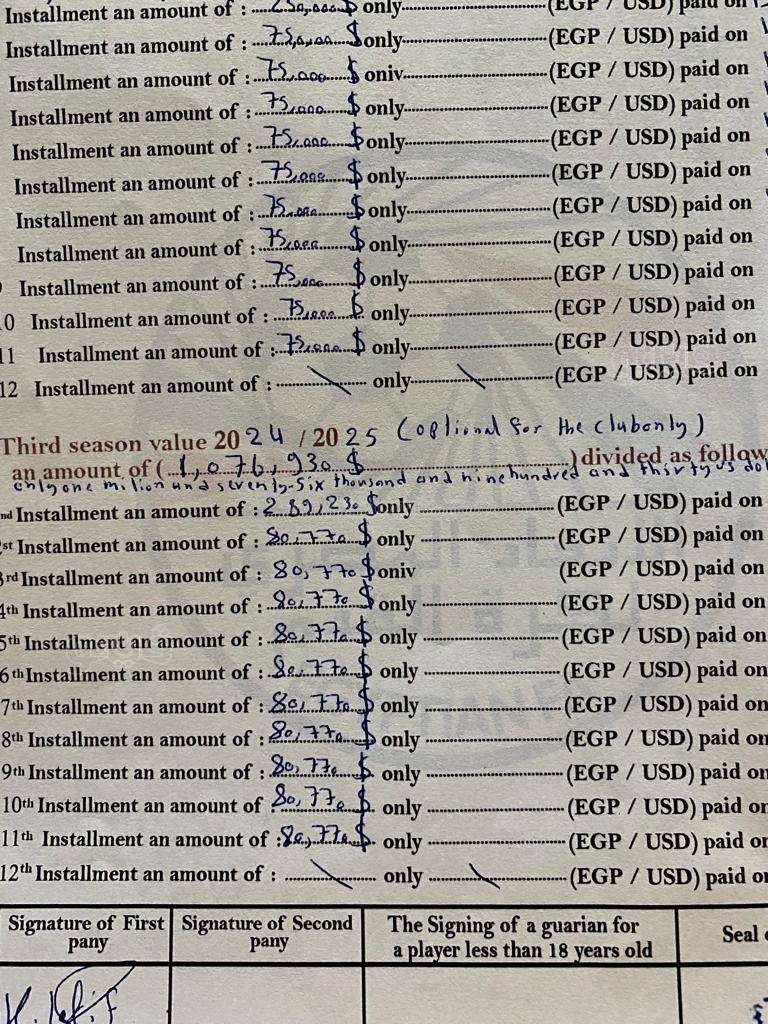 Installment an amount of : 250,000 $ only (EGP / USD) paid on
Installment an amount of : 75,000 $ only (EGP / USD) paid on
Installment an amount of : 75,000 $ oniv (EGP / USD) paid on
Installment an amount of : 75,000 $ only (EGP / USD) paid on
Installment an amount of : 75,000 $ only (EGP / USD) paid on
Installment an amount of : 75,000 $ only (EGP / USD) paid on
Installment an amount of : 75,000 $ only (EGP / USD) paid on
Installment an amount of : 75,000 $ only (EGP / USD) paid on
Installment an amount of : 75,000 $ only (EGP / USD) paid on
10 Installment an amount of : 75,000 $ only (EGP / USD) paid on
11 Installment an amount of : 75,000 $ only (EGP / USD) paid on
12 Installment an amount of : \ only \ (EGP / USD) paid on
Third season value 2024 / 2025 (optional for the club only)
an amount of ( 1,076,930 $ ) divided as follow
only one milion und seventy-six thousand and nine hundred and thirty us dol
nd Installment an amount of : 269,230 $ only (EGP / USD) paid on
st Installment an amount of : 80,770 $ only (EGP / USD) paid on
3rd Installment an amount of : 80,770 $ oniv (EGP / USD) paid on
4th Installment an amount of : 80,770 $ only (EGP / USD) paid on
5th Installment an amount of : 80,770 $ only (EGP / USD) paid on
6th Installment an amount of : 80,770 $ only (EGP / USD) paid on
7th Installment an amount of : 80,770 $ only (EGP / USD) paid on
8th Installment an amount of : 80,770 $ only (EGP / USD) paid on
9th Installment an amount of : 80,770 $ only (EGP / USD) paid on
10th Installment an amount of : 80,770 $ only (EGP / USD) paid on
11th Installment an amount of : 80,770 $ only (EGP / USD) paid on
12th Installment an amount of : \ only \ (EGP / USD) paid on
Signature of First pany
Signature of Second pany
The Signing of a guarian for
a player less than 18 years old
Seal